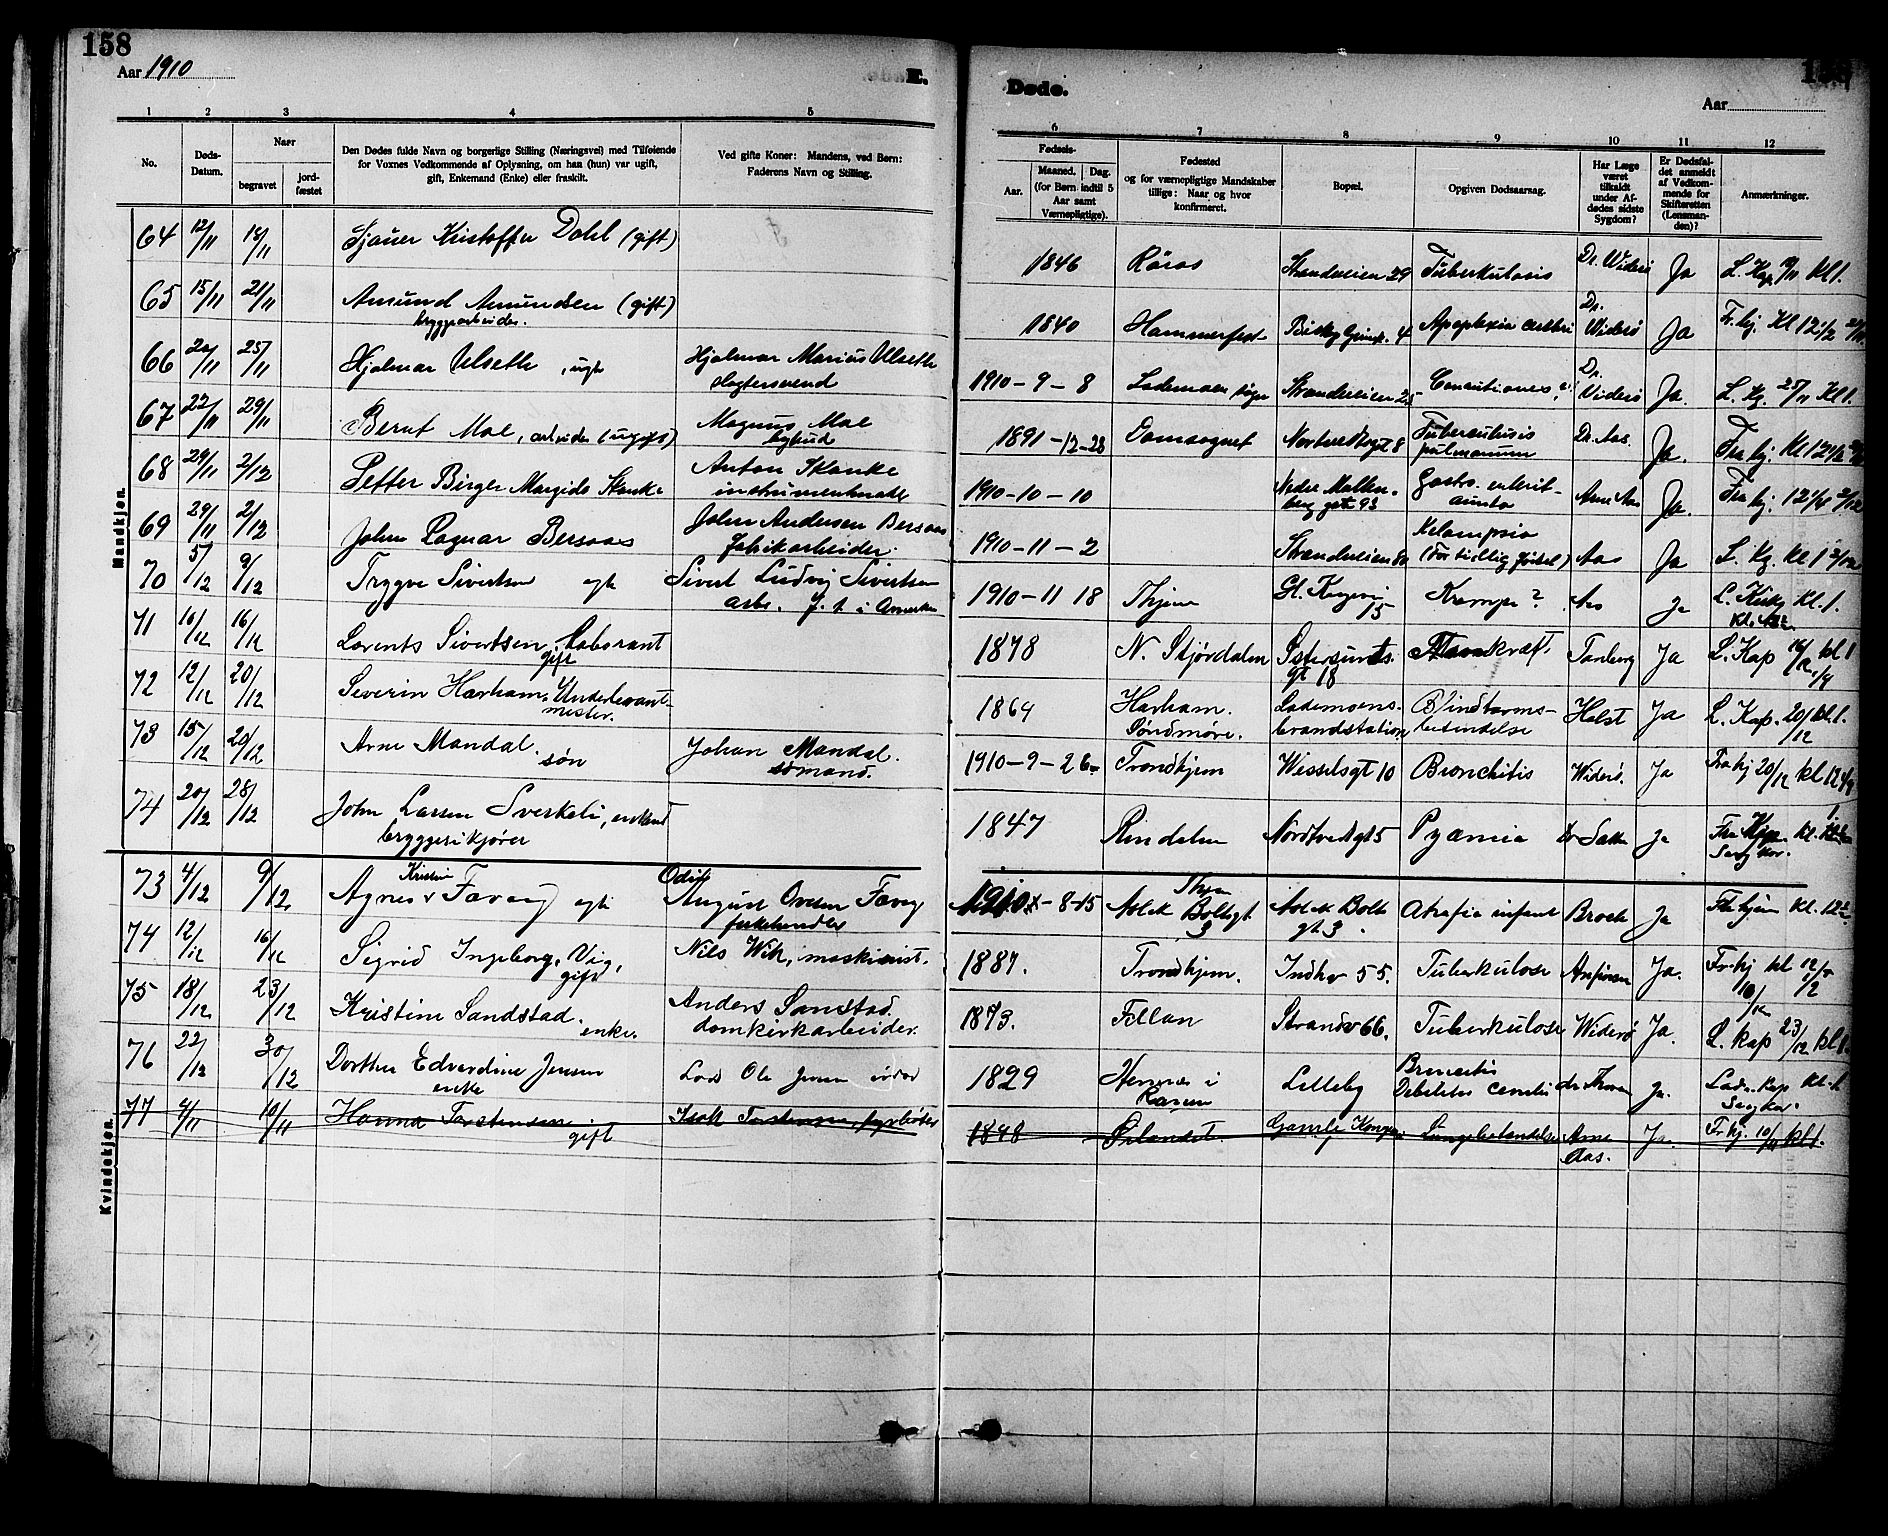 158
Aar 1910
E.
Døde.
Aar
1 2 3 4 5
6 7 8 9 10 11 12
No.
Døds-Datum.
Naar
begravet
jord-fæstet
Den Dødes fulde Navn og borgerlige Stilling (Næringsvei) med Tilføiende
for Voxnes Vedkommende af Oplysning, om han (hun) var ugift,
gift, Enkemand (Enke) eller fraskilt.
Ved gifte Koner: Mandens, ved Børn:
Faderens Navn og Stilling.
Fødsels-
Aar.
Maaned. Dag.
(for Børn indtil 5
Aar samt
Værnepligtige).
Fødested
og for værnepligtige Mandskaber
tillige: Naar og hvor
konfirmeret.
Bopæl.
Opgiven Dødsaarsag.
Har Læge
været
tilkaldt
under Af-
dødes sidste
Sygdom?
Er Dødsfal-
det anmeldt
af Vedkom-
mende for
Skifteretten
(Lensman-
den)?
Anmærkninger.
Mandkjøn.
64 12/11 18/11 Sjauer Kristoffer Dahl (gift) 1846 Røros Strandveien 29 Tuberkulosis Dr. Widerø Ja L. Kap. 18/11 kl 1.
65 15/11 21/11 Amund Amundsen (gift)
bryggearbeider. 1840 Hammerfest 4 Apoplexia cerebri Dr. Widerø Ja Fr. kj. Kl 12 1/2
66 20/11 25/11 Hjalmar Ulseth, ugt Hjalmar Marius Ulseth
slagtersvend 1910-9-8 Lademoen sogn Strandveien 25 Dr. Widerø Ja. L. Kg. 25/11 Kl 1.
67 22/11 29/11 Bernt Moe, arbeider (ugift) Magnus Moe
bybud 1891-12-28 Domsognet 8 Tuberculosis
pulmonum Dr. Aas. Ja. Fra kj. Kl 12 1/2
68 29/11 2/12 Petter Birger Margido Skanke Anton Skanke
instrumentmager 1910-10-10 Nedre Møllen-
berg gate 93 Gastro enterit Arne Aas Ja. Fra kj. 12 1/4 2/12
69 29/11 2/12 John Ragnar Bersaas John Andersen Bersaas
fabrikarbeider. 1910-11-2 Strandveien 80 Eclampsia
(For tidlig fødsel) Aas Ja L. Kg. kl 1 2/12
70 5/12 9/12 Trygve Sivertsen egte Sivert Ludvig Sivertsen
arb. f. t. i Amerika 1910-11 18 Thjem Gl. Kongevei
15 Krampe? Aas Ja L. Kirke Kl. 1.
71 10/12 16/12 Lorents Sivertsen, Laborant
gift 1878 N. Stjørdalen Østersunds.
gt 18 Mavekræft. Tanberg Ja L. Kap 16/12 kl 1
72 12/12 20/12 Severin Harham, Underbrand-
mester. 1864 Harham.
Søndmøre. Lademoens
brandstation Blindtarms-
betændelse Holst Ja L. Kap. 20/12 kl. 1.
73 15/12 20/12 Arne Mandal.
søn Johan Mandal.
sømand. 1910-9-26 Trondhjem Wesselsgt 10 Bronchitis Widerø. Ja Fra kj 20/12 kl 12
74 20/12 28/12 John Larsen Sverkeli, enkemd
bryggerikjører 1847 Rindalen Nordtvedtgt 5 Pyæmia Ja
Kvindekjøn.
73 4/12 9/12 Agnes Kristine Favey egte August Odin Ovesen Favey
fiskehandler 1910-8-15 Thjem
Aslak Boltsgt
3 Aslak Bolts
gt 3. Atrofia infant Broch Ja Fr hjem Kl. 12 1/2
74 12/12 16/12 Sigrid Ingeborg Vig,
gift Nils Wik, maskinist. 1887. Trondhjem. Indhv 55. Tuberkulose Arfinsen Ja. Fr kj kl 12 1/2
16/12
75 18/12 23/12 Kristine Sandstad.
enke. Anders Sandstad.
domkirkarbeider. 1873. Fillan Strandv 66. Tuberkulose Widerø Ja. L. Kap 23/12 kl 1.
76 22/12 30/12 Dorthea Edvardine Jensen
enke Ole Jensen 1829 Hemnes i
Ranen Lilleby Bronchitis
Debilitas Ja. Lade Kap Kl. 1
77 4/11 10/11 Hanna Torstensen
gift Isak Torstensen, fyrbøter 1848 Ørlandet. Gamle Kongev. Lungebetændelse Arne
Aas. Ja. Fr kj. 10/11 kl 1.